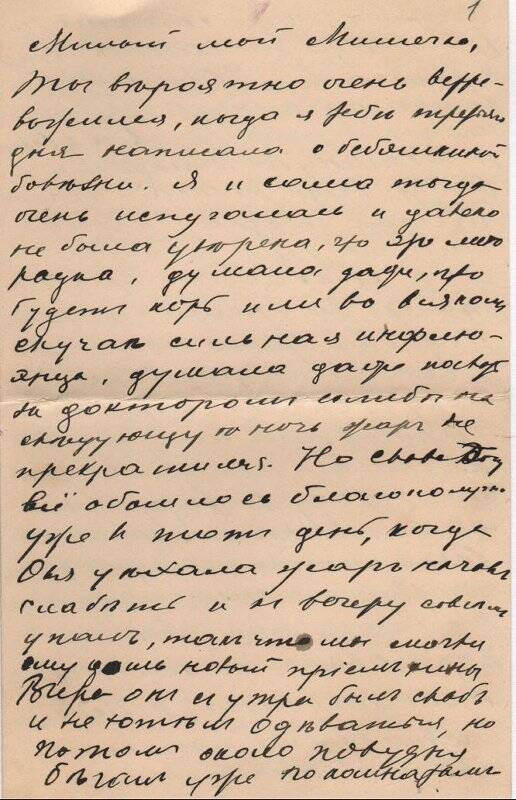 1
Милый мой Мишечка,
Ты вѣроятно очень встре-
вожился, когда я тебѣ третьяго
дня написала о бебяшкиной
болѣзни. Я и сама тогда
очень испугалась и далеко
не была увѣрена, что это лихо
радка, думала даже, что
будетъ корь или во всякомъ
случаѣ сильная инфлю-
энца, думала даже послать
за докторомъ если бы на
слѣдующую ночь жаръ не
прекратился. Но слава Богу
всё обошлось благополучно
уже въ тотъ день, когда
Оля уѣхала жаръ началъ
слабѣть и къ вечеру совсѣмъ
упалъ, такъ что мы могли
ему дать новый пріемъ хины
Вчера онъ съ утра былъ слабъ
и не хотѣлъ одѣваться, но
потомъ около полудня
бѣгалъ уже по комнатамъ